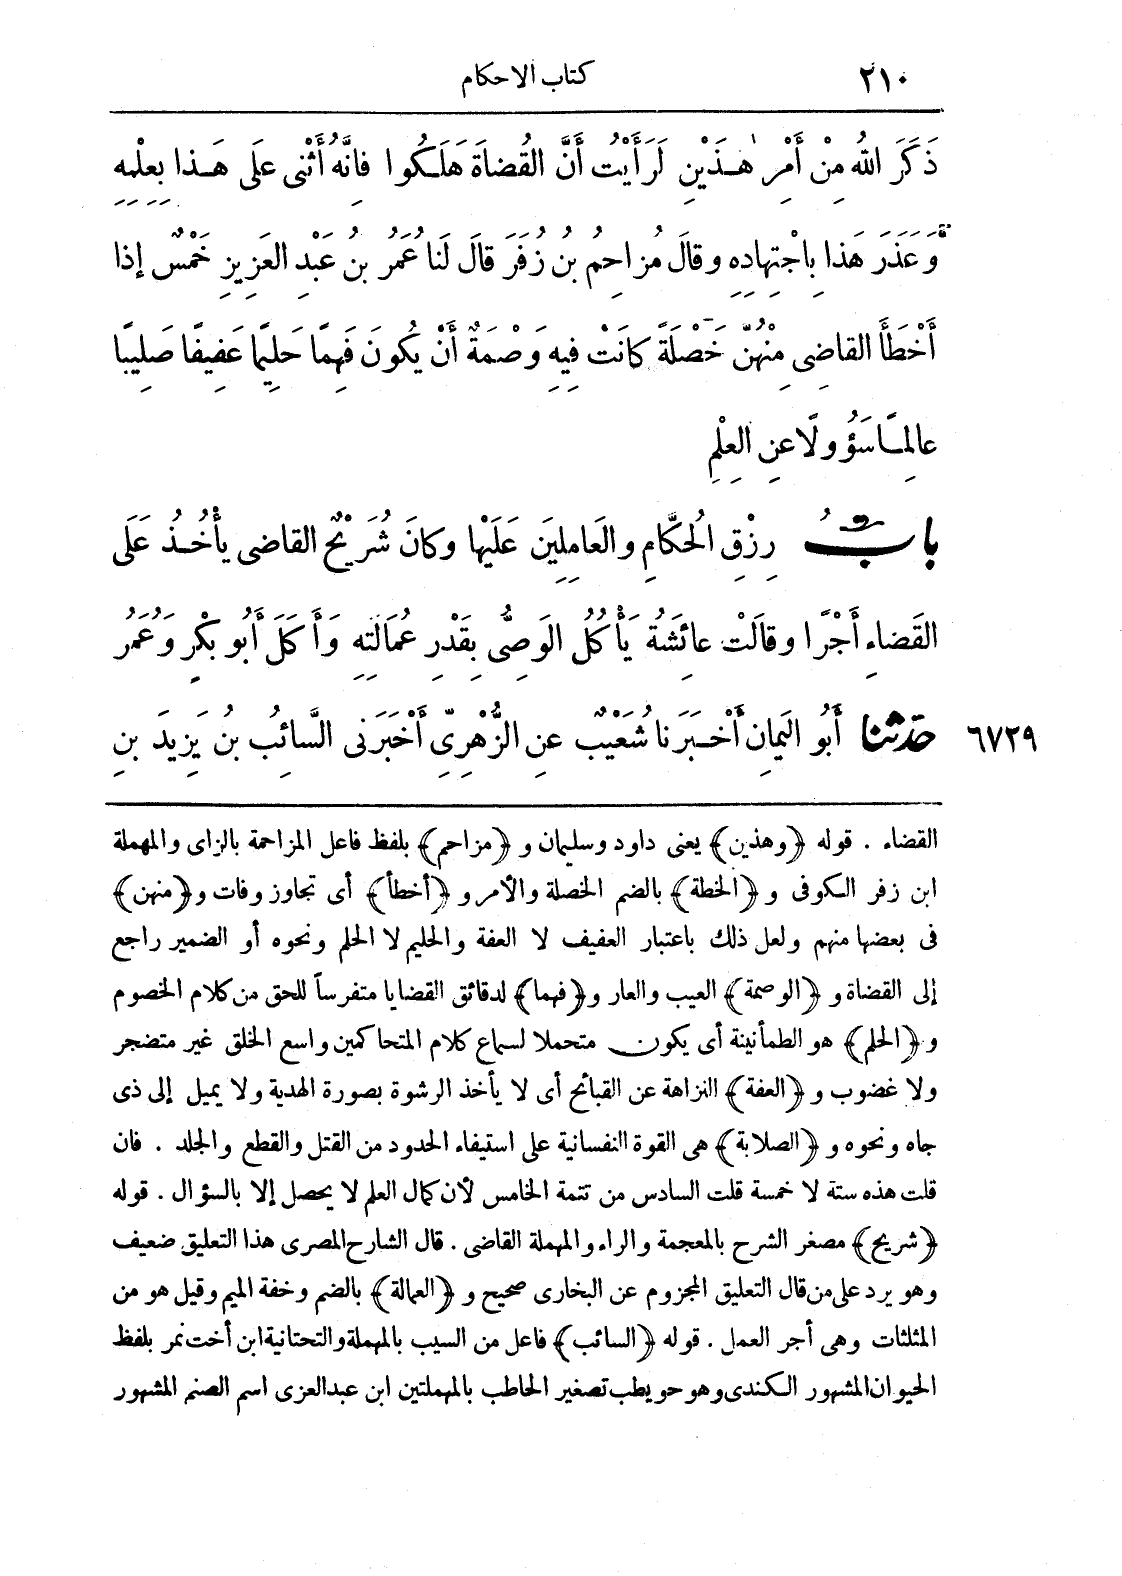 ٢١٠ كتاب الاحكام
ذَكَرَ اللهُ مِنْ أَمْرِ هٰـذَيْنِ لَرَأَيْتُ أَنَّ القُضَاةَ هَلَـكُوا فَانَّهُ أَثْنَى عَلَى هَـذا بِعِلْمِهِ
وَعَذَرَ هَذا بِاجْتِهادِهِ وقالَ مُزاحِمُ بنُ زُفَرَ قالَ لَنا عُمَرُ بنُ عَبْدِ العَزِيزِ خَمْسٌ إذا
أَخْطَأَ القاضِى مِنْهُنَّ خَصْلَةً كانَتْ فِيهِ وَصْمَةٌ أَنْ يَكُونَ فَهِمًا حَلِيمًا عَفِيفًا صَلِيبًا
عالِمًـا سَؤُولًا عنِ العِلْمِ
بابُ رِزْقِ الحُكَّامِ والعَامِلِينَ عَلَيْها وكانَ شُرَيْحٌ القاضِى يأْخُـذُ عَلَى
القَضاءِ أَجْرًا وقالَتْ عائِشَةُ يَأْكُلُ الوَصِىُّ بِقَدْرِ عُمَالَتِهِ وَأَكَلَ أَبُو بَكْرٍ وَعُمَرُ
٦٧٢٩ حَدَّثَنَا أَبُو اليَمانِ أَخْـبَرَنا شُعَيْبٌ عنِ الزُّهْرِىِّ أَخْبَرَنِى السَّائِبُ بنُ يَزِيدَ بنِ
القضاء . قوله ﴿وهذين﴾ يعنى داود وسليمان و ﴿مزاحم﴾ بلفظ فاعل المزاحمة بالزاى والمهملة
ابن زفر الـكوفى و ﴿الخطة﴾ بالضم الخصلة والأمر و ﴿أخطأ﴾ أى تجاوز وفات و﴿منهن﴾
فى بعضها منهم ولعل ذلك باعتبار العفيف لا العفة والحليم لا الحلم ونحوه أو الضمير راجع
إلى القضاة و ﴿الوصمة﴾ العيب والعار و﴿فهما﴾ لدقائق القضايا متفرساً للحق من كلام الخصوم
و ﴿الحلم﴾ هو الطمأنينة أى يكون متحملا لسماع كلام المتحاكمين واسع الخلق غير متضجر
ولا غضوب و ﴿العفة﴾ النزاهة عن القبائح أى لا يأخذ الرشوة بصورة الهدية ولا يميل إلى ذى
جاه ونحوه و ﴿الصلابة﴾ هى القوة النفسانية على استيفاء الحدود من القتل والقطع والجلد . فان
قلت هذه ستة لا خمسة قلت السادس من تتمة الخامس لأن كمال العلم لا يحصل إلا بالسؤال . قوله
﴿شريح﴾ مصغر الشرح بالمعجمة والراء والمهملة القاضى . قال الشارح المصرى هذا التعليق ضعيف
وهو يرد على من قال التعليق المجزوم عن البخارى صحيح و ﴿العمالة﴾ بالضم وخفة الميم وقيل هو من
المثلثات وهى أجر العمل . قوله ﴿السائب﴾ فاعل من السيب بالمهملة والتحتانية ابن أخت نمر بلفظ
الحيوان المشهور الـكندى وهو حويطب تصغير الحاطب بالمهملتين ابن عبدالعزى اسم الصنم المشهور